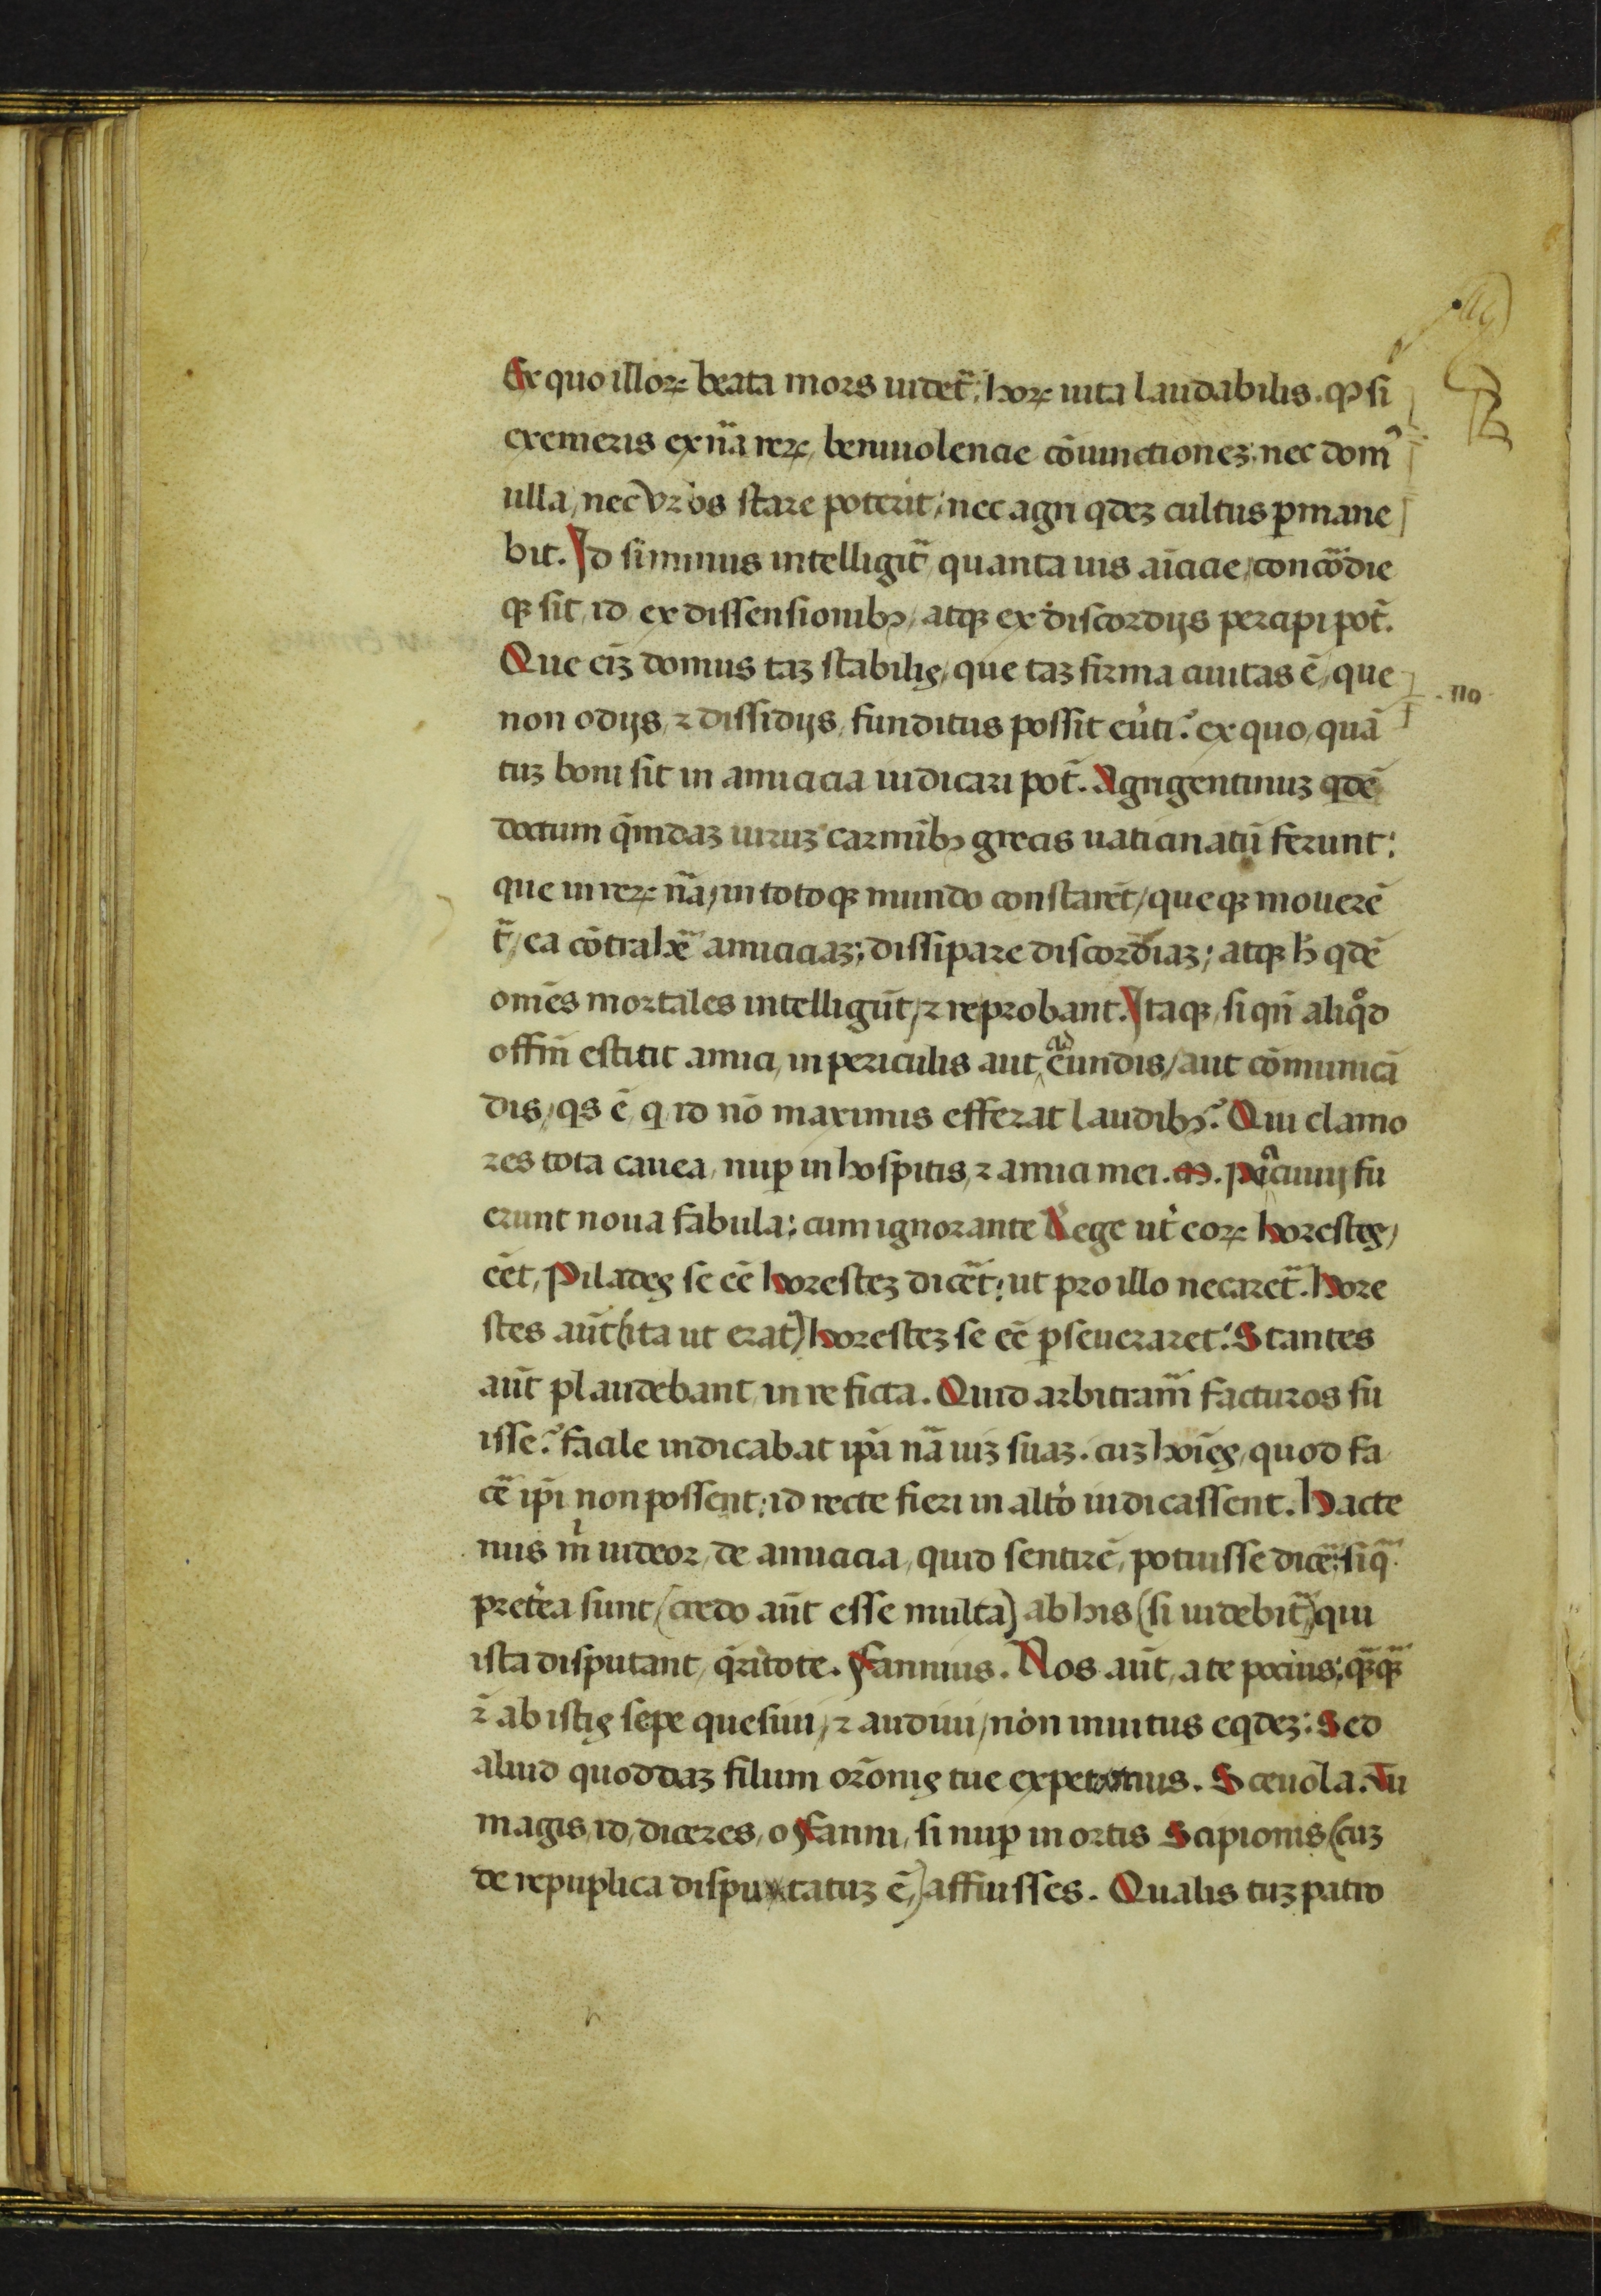 Ex quo illoꝝ beata mors uidet᷑: hoꝝ uita laudabilis. ꝙ si
exemeris ex nã reꝝ, beniuolencie cōiunctioneꝫ: nec domꝰ
ulla, nec vrbs stare poterit: nec agri qdeꝫ cultus ꝑmane
bit. Id si minus intelligit᷑, quanta uis aīcicie, concordie
qꝫ sit, id ex dissensionibꝫ, atqꝫ ex discordijs percipi pot̄.
Que eīꝫ domus taꝫ stabilis, que taꝫ firma ciuitas ē, que
non odijs, ⁊ dissidijs, funditus possit eu̓ti? ex quo, quã
tuꝫ boni sit in amicicia iudicari pot̄. Agrigentinuꝫ qdē
doctum q̄ndaꝫ uiruꝫ carmībꝫ grecis uaticinatū ferunt:
que in reꝝ nã, in totoqꝫ mundo constarēt, queqꝫ mouerē
t᷑, ea cōtrahē᷑ amiciciaꝫ: dissipare discordiaꝫ; atqꝫ h̄ qdē
omēs mortales intelligūt, ⁊ reprobant. Itaqꝫ, si qn̄ aliqͦd
offīm̄ estitit amici, in periculis aut, ad eundis, aut cōmunicã
dis, qs ē, q id nō maximis efferat laudibꝫ? Qui clamo
res tota cauea, nuꝑ in hospitis, ⁊ amici mei. M. pacuuij fu
erunt noua fabula: cum ignorante Rege ut̓ eoꝝ horestes,
eēt, Pilades se eē horesteꝫ dicēt: ut pro illo necaret᷑. Hore
stes aūt (ita ut erat) horesteꝫ se eē ꝑseueraret: Stantes
aūt plaudebant, in re ficta. Quid arbitram᷑ facturos fu
isse? facile indicabat ip̄a nã uiꝫ suaꝫ. cuꝫ hoīes, quod fa
cē᷑ ip̄i non possent: id recte fieri in alt̓o iudicassent. Hacte
nus m̓ uideor, de amicicia, quid sentirē, potuisse dicē᷑: si q̄
pret̓ea sunt, (credo aūt esse multa) ab his (si uidebit᷑) qui
ista disputant, q̄ri̓tote. Fannius. Nos aūt, a te pocius: q̄ꝫq̄ꝫ
⁊̄ ab istis sepe quesiui, ⁊ audiui, non inuitus eqdeꝫ: Sed
aliud quoddaꝫ filum orōnis tue expetimus. Sceuola. Tu
magis, id, diceres, o Fanni, si nuꝑ in ortis Scipionis (cuꝫ
de repuplica disputatuꝫ ē,) affuisses. Qualis tuꝫ patro
no